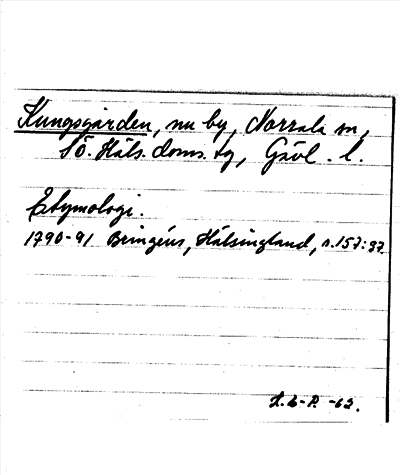 Kungsgården, nu by, Norrala sn,
Sö. Häls. doms. tg, Gävl. l.
Etymologi.
1790-91 Bringéus, Hälsingland, s. 157:37.
-62.